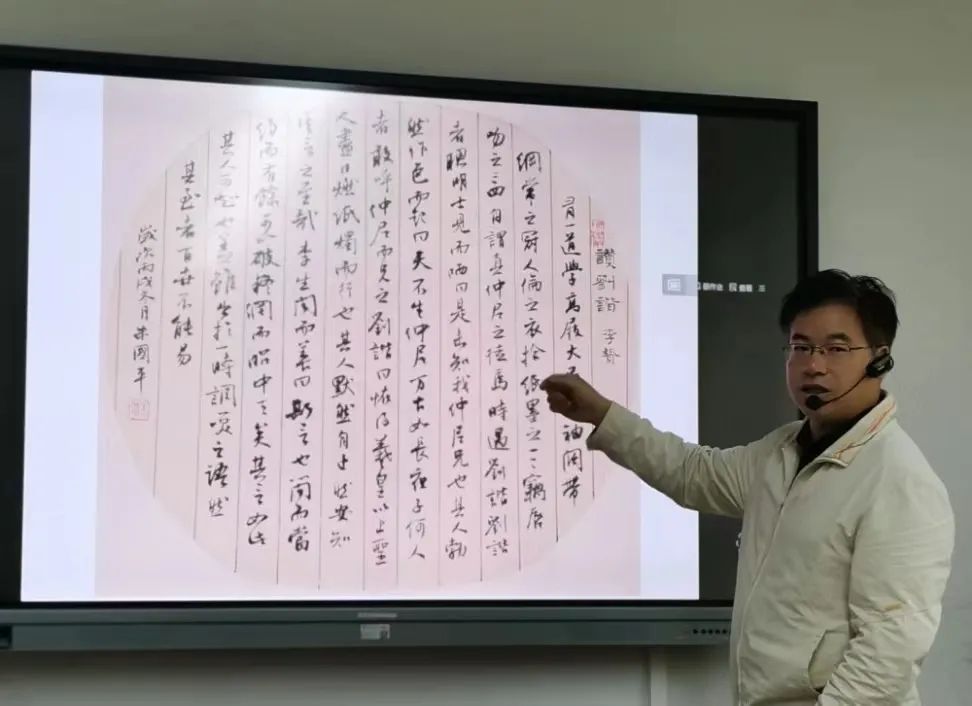 讚劉諧 李贄
有一道學高屐大袖闊帶
綱常之冠人倫之衣拾紙墨之一二竊唇
吻之三四自謂真仲尼之徒焉時遇劉諧劉諧
者聰明士見而哂曰是未知我仲尼兄也其人勃
然作色而起曰天不生仲尼万古如長夜子何人
者敢呼仲尼而兄之劉諧曰怪得羲皇以上聖
人盡日燃紙燭而行也其人默然自止然安知
其言之至哉李生聞而善曰斯言也簡而當
約而有餘可破疑網而昭中天矣其言如此
其人可知也蓋雖出於一時調笑之語然
其至者百世不能易
歲次丙戌冬月朱國平